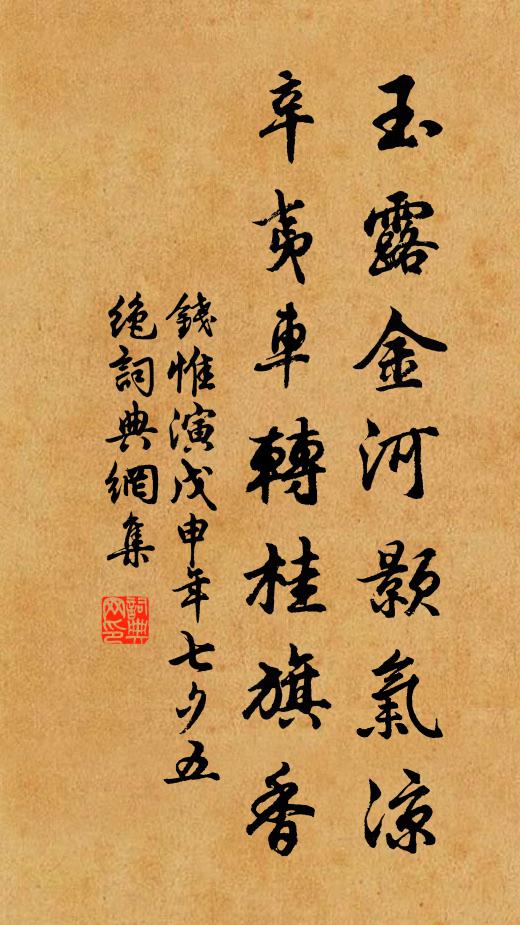 玉露金河顥氣涼
辛夷車轉桂旗香
錢惟演戊申年七夕五
絶詞典網集
詞典
网印